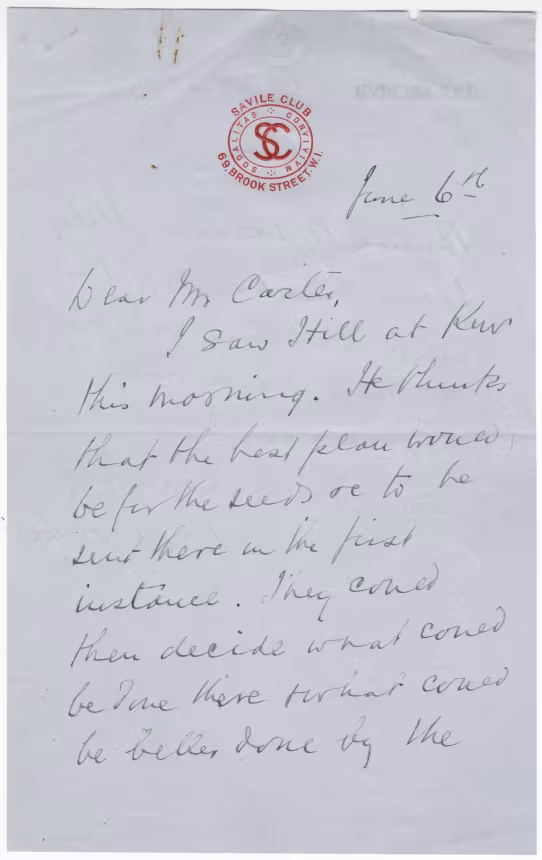 SAVILE CLUB
SODALITAS CONVIVIUM
SC
69, BROOK STREET. W.1.
June 6th
Dear Mr Carter,
I saw Hill at Kew
this morning. He thinks
that the best plan would
be for the seeds &c to be
sent there in the first
instance. They could
then decide what could
be done there & what could
be better done by the